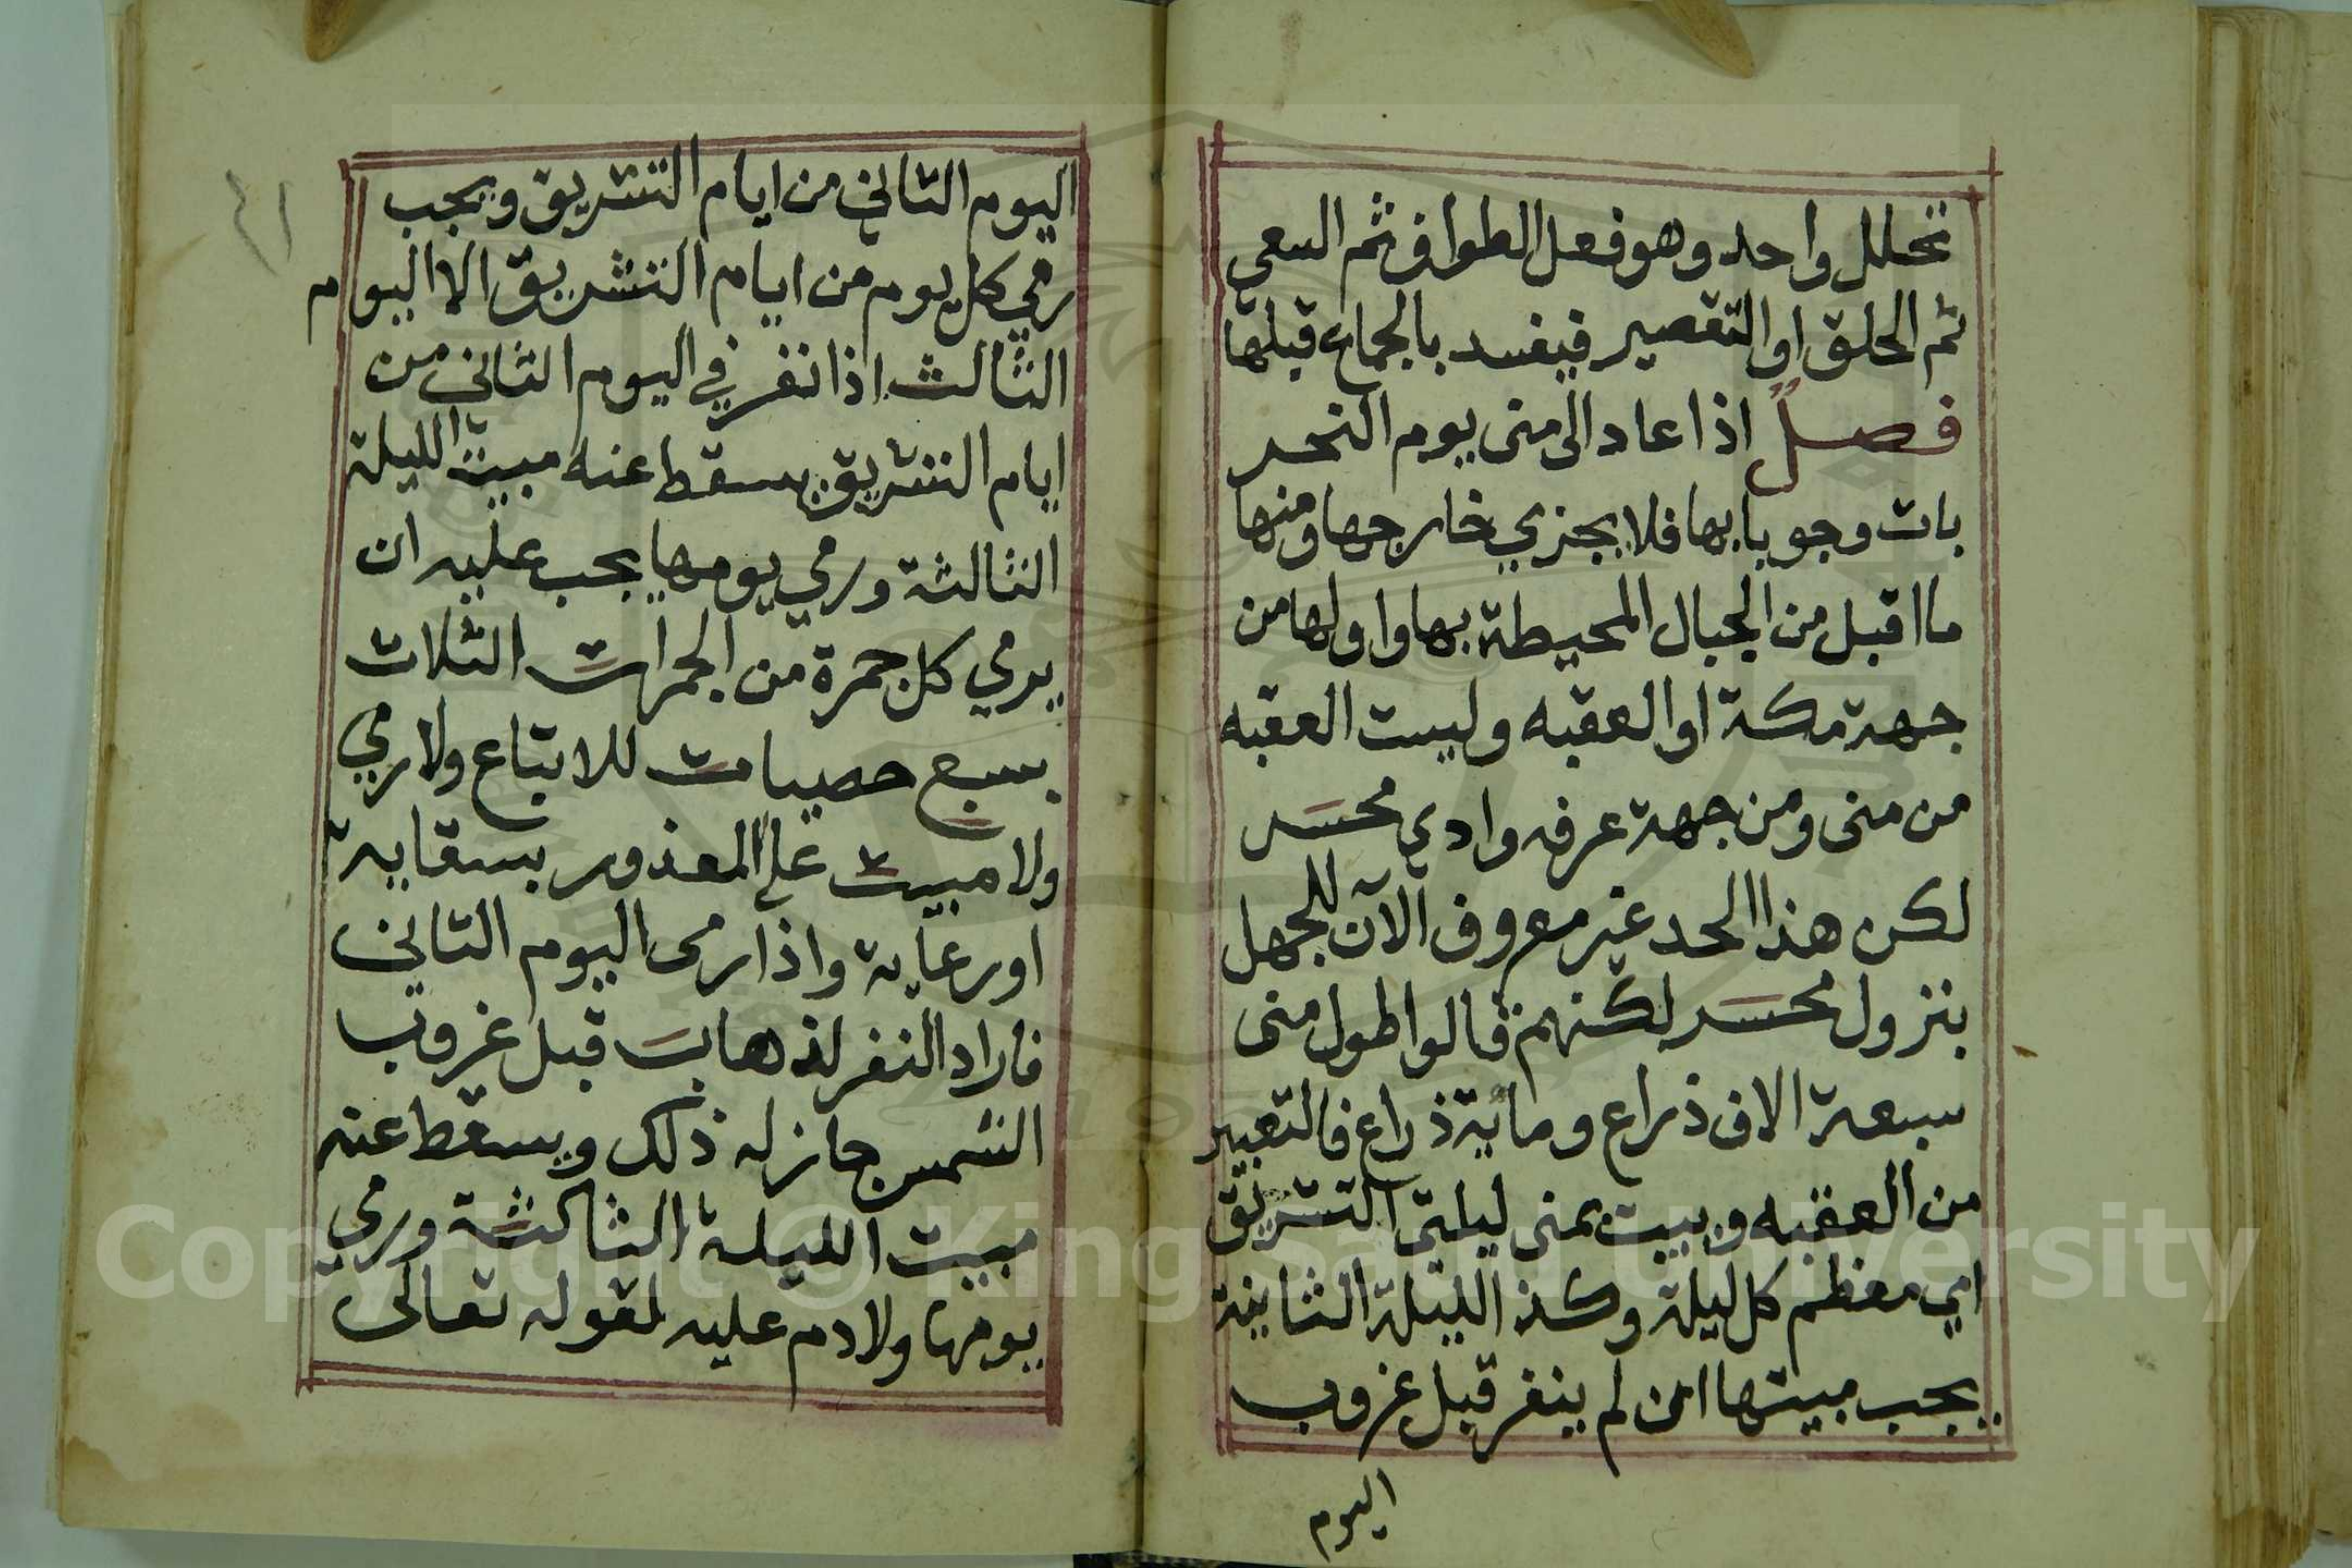 تحلل واحد وهو فعل الطواف ثم السعي
ثم الحلق او التقصير فيفسد بالجماع قبلها
فصل اذا عاد الى منى يوم النحر
بات وجوبا بها فلا يجزي خارجها ومنها
ما اقبل من الجبال المحيطة بها واولها من
جهة مكة او العقبه وليست العقبه
من منى ومن جهة عرفه وادي محسر
لكن هذا الحد غير معروف الآن للجهل
بنزول محسر لكنهم قالوا طول منى
سبعة الاف ذراع ومائة ذراع فالتعبير
من العقبه ويبيت بمنى ليلتى التشريق
اي معظم كل ليلة وكذا الليلة الثانية
يجب مبيتها ان لم ينفر قبل غروب
اليوم
٤١
اليوم الثاني من ايام التشريق ويجب
رمي كل يوم من ايام التشريق الا اليوم
الثالث اذا نفر في اليوم الثاني من
ايام التشريق يسقط عنه مبيت الليلة
الثالثة ورمي يومها يجب عليه ان
يرمي كل جمرة من الجمرات الثلاث
بسبع حصيات للاتباع ولا رمي
ولا مبيت على المعذور بسقاية
او رعاية واذا رمى اليوم الثاني
فاراد النفر لذهاب قبل غروب
الشمس جاز له ذلك ويسقط عنه
مبيت الليلة الثالثة ورمي
يومها ولا دم عليه لقوله تعالى
Copyright © King Saud University